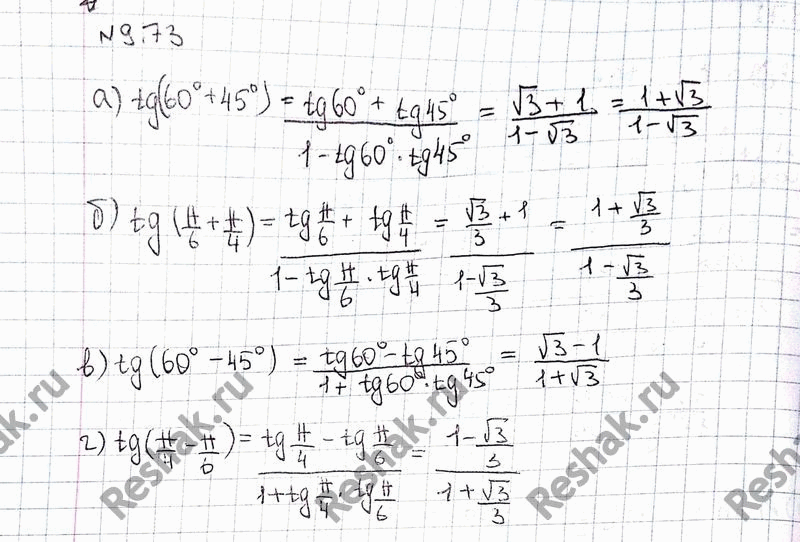 №9.73
а) tg(60° + 45°) = (tg60° + tg45°)/(1 - tg60° · tg45°) = (√3 + 1)/(1 - √3) = (1 + √3)/(1 - √3)
б) tg(π/6 + π/4) = (tg π/6 + tg π/4)/(1 - tg π/6 · tg π/4) = (√3/3 + 1)/(1 - √3/3) = (1 + √3/3)/(1 - √3/3)
в) tg(60° - 45°) = (tg60° - tg45°)/(1 + tg60° · tg45°) = (√3 - 1)/(1 + √3)
г) tg(π/4 - π/6) = (tg π/4 - tg π/6)/(1 + tg π/4 · tg π/6) = (1 - √3/3)/(1 + √3/3)
Reshak.ru
Reshak.ru
Reshak.ru
Reshak.ru